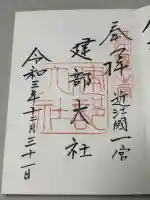 奉拝
近江國一宮
建部大社
令和三年十二月三十一日